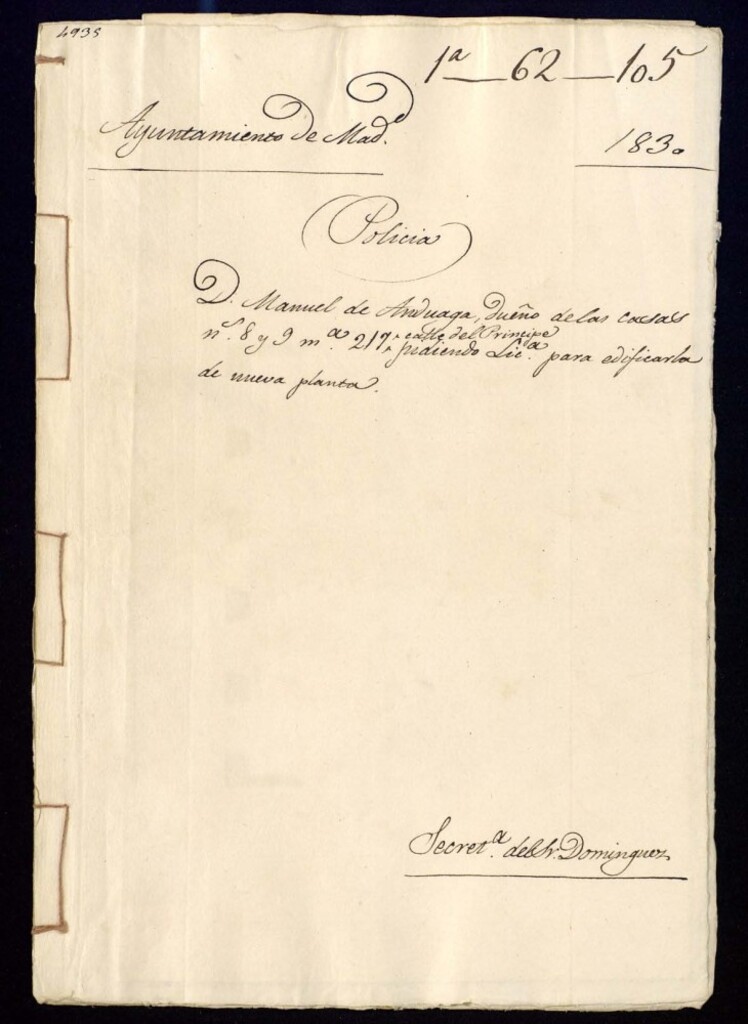 4935
1ª — 62 — 105
Ayuntamiento de Mad.d
1830
Policia
D. Manuel de Anduaga, dueño de las casas
n.s 8 y 9 m.a 217 calle del Principe
pidiendo Lic.a para edificarla
de nueva planta.
Secret.a del Sr. Dominguez